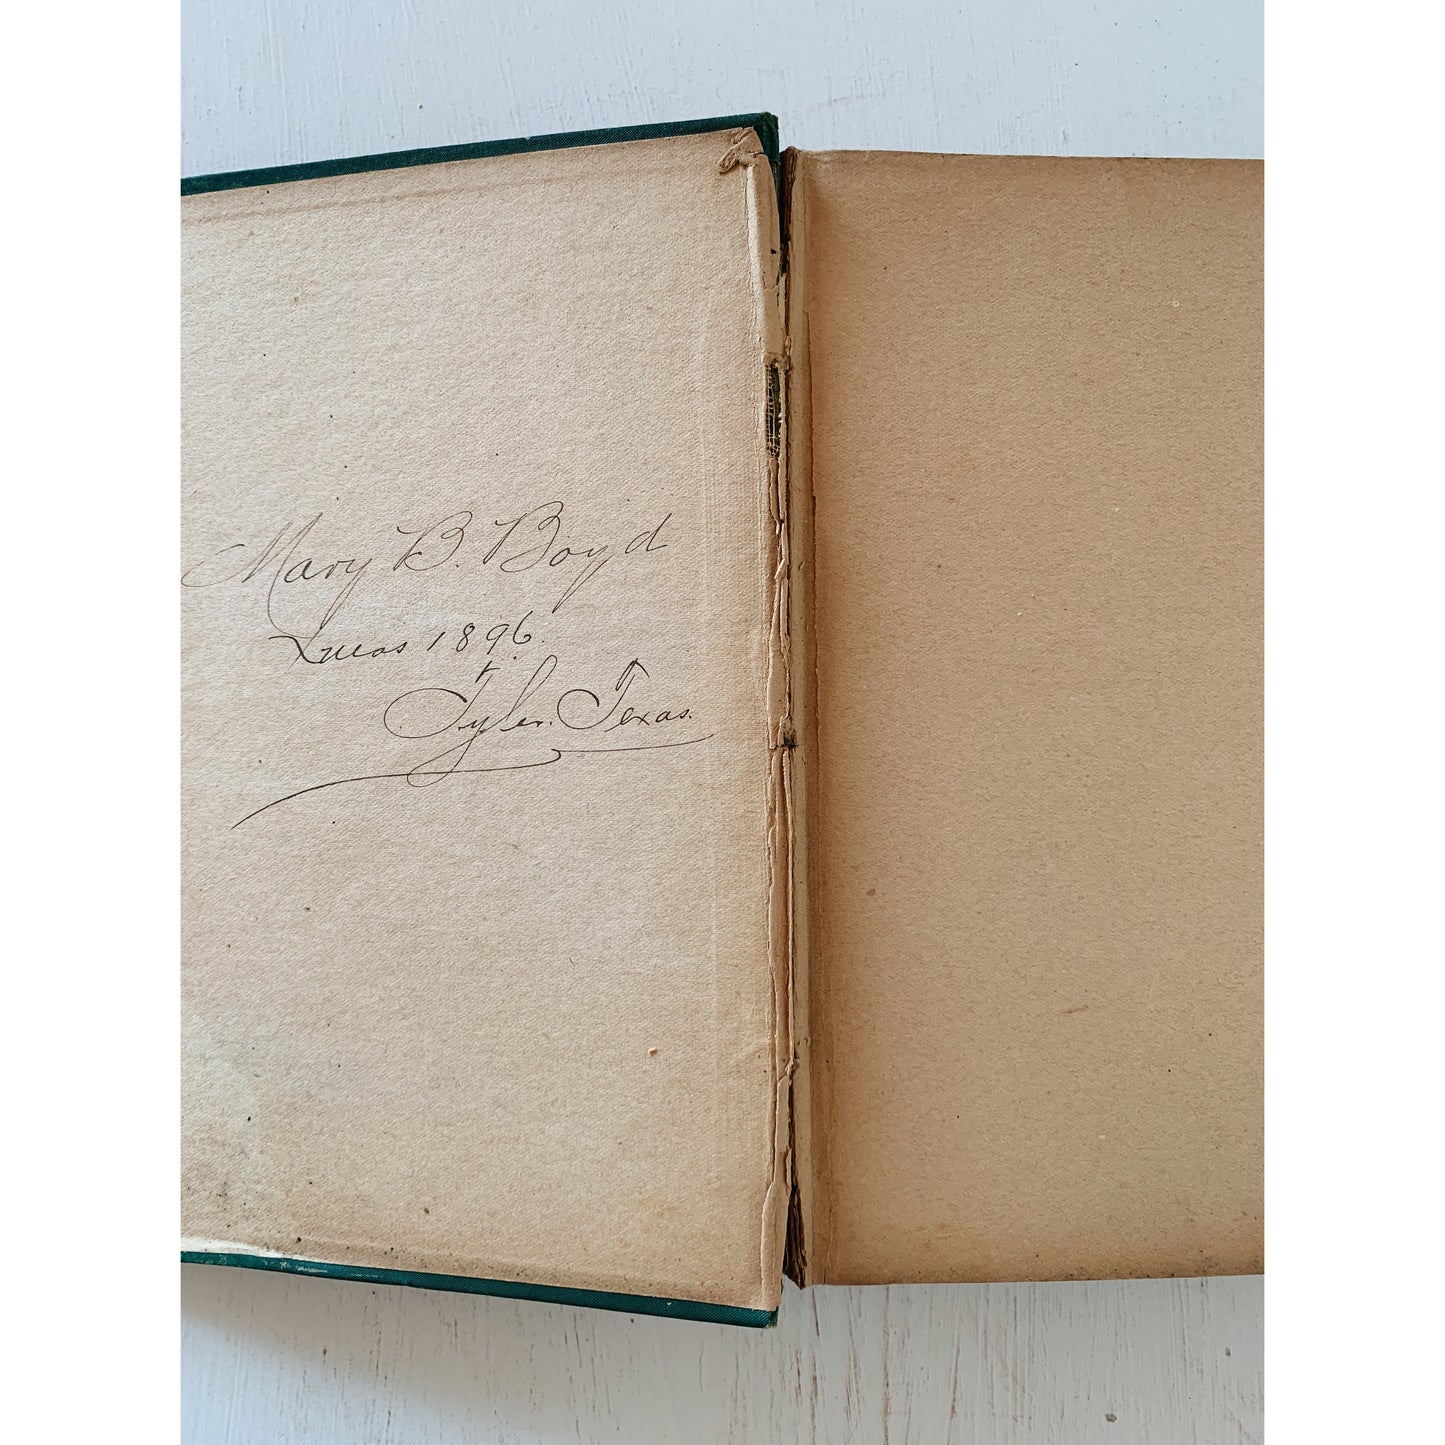 Mary B. Boyd
Xmas 1896.
Tyler. Texas.